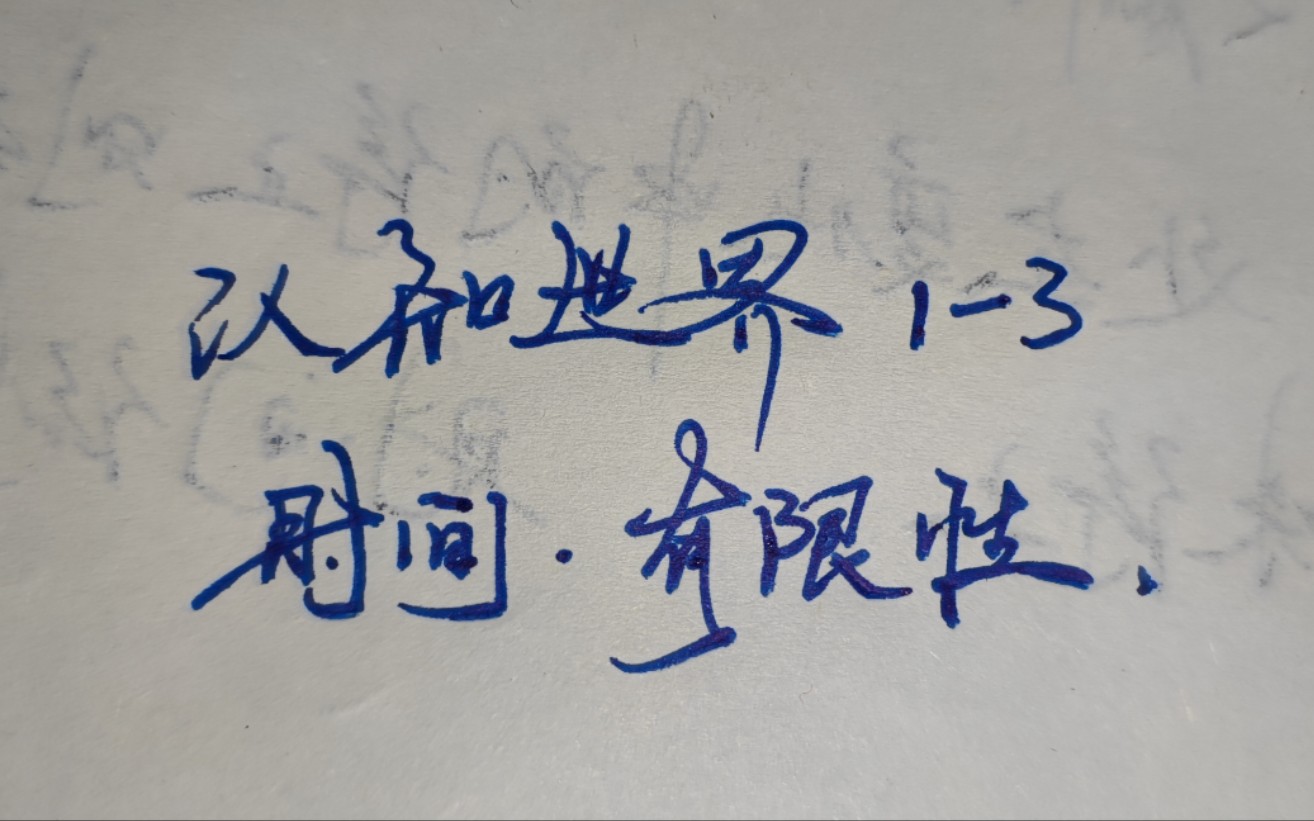 认知世界 1-3
时间·有限性.